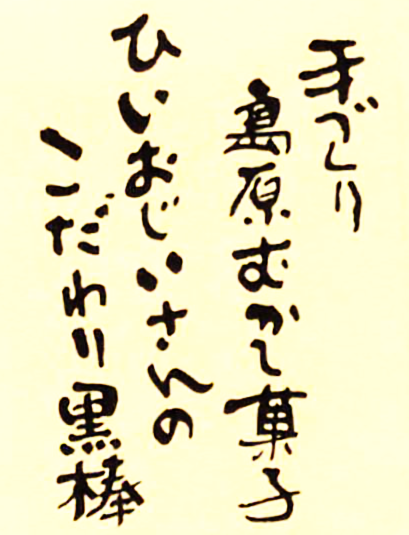 手づくり
島原むかし菓子
ひいおじいさんの
こだわり黒棒